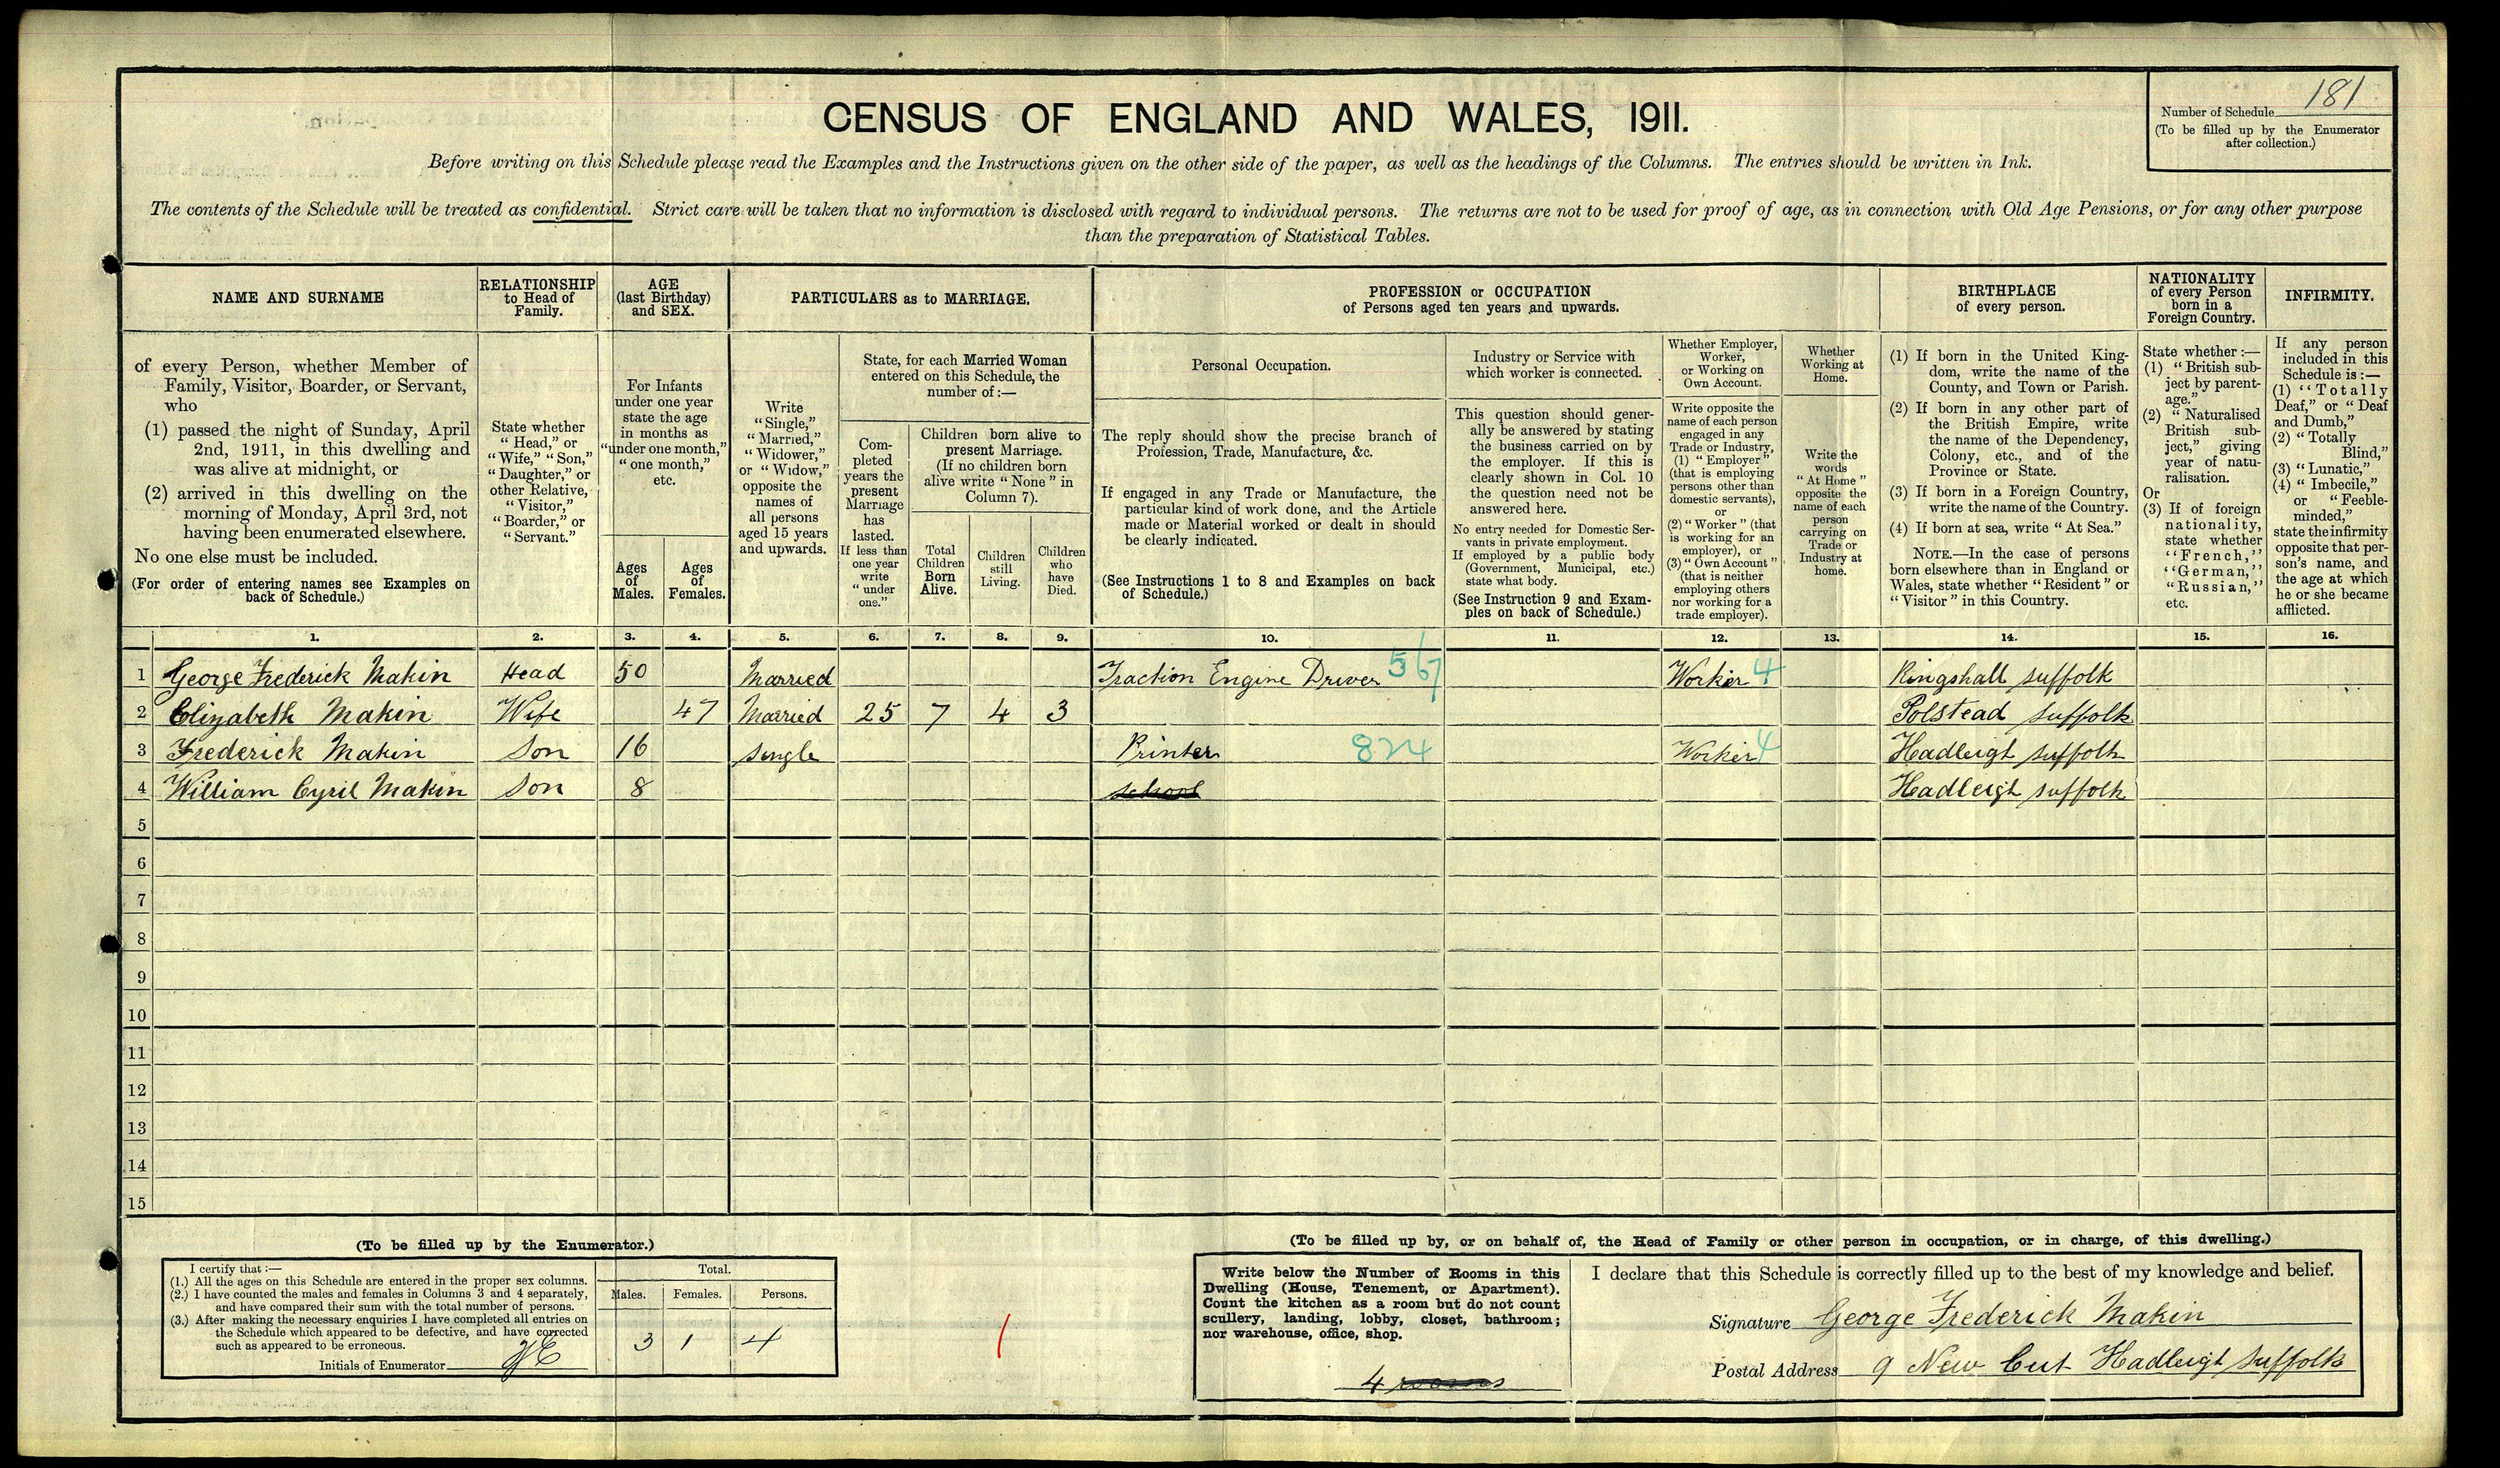 CENSUS OF ENGLAND AND WALES, 1911.
Number of Schedule 181
(To be filled up by the Enumerator
after collection.)
Before writing on this Schedule please read the Examples and the Instructions given on the other side of the paper, as well as the headings of the Columns. The entries should be written in Ink.
The contents of the Schedule will be treated as confidential. Strict care will be taken that no information is disclosed with regard to individual persons. The returns are not to be used for proof of age, as in connection with Old Age Pensions, or for any other purpose
than the preparation of Statistical Tables.
NAME AND SURNAME
of every Person, whether Member of
Family, Visitor, Boarder, or Servant,
who
(1) passed the night of Sunday, April
2nd, 1911, in this dwelling and
was alive at midnight, or
(2) arrived in this dwelling on the
morning of Monday, April 3rd, not
having been enumerated elsewhere.
No one else must be included.
(For order of entering names see Examples on
back of Schedule.)
RELATIONSHIP
to Head of
Family.
State whether
"Head," or
"Wife," "Son,"
"Daughter," or
other Relative,
"Visitor,"
"Boarder," or
"Servant."
AGE
(last Birthday)
and SEX.
For Infants
under one year
state the age
in months as
"under one month,"
"one month,"
etc.
Ages
of
Males.
Ages
of
Females.
PARTICULARS as to MARRIAGE.
Write
"Single,"
"Married,"
"Widower,"
or "Widow,"
opposite the
names of
all persons
aged 15 years
and upwards.
State, for each Married Woman
entered on this Schedule, the
number of :—
Com-
pleted
years the
present
Marriage
has
lasted.
If less than
one year
write
"under
one."
Children born alive to
present Marriage.
(If no children born
alive write "None" in
Column 7).
Total
Children
Born
Alive.
Children
still
Living.
Children
who
have
Died.
PROFESSION or OCCUPATION
of Persons aged ten years and upwards.
Personal Occupation.
The reply should show the precise branch of
Profession, Trade, Manufacture, &c.
If engaged in any Trade or Manufacture, the
particular kind of work done, and the Article
made or Material worked or dealt in should
be clearly indicated.
(See Instructions 1 to 8 and Examples on back
of Schedule.)
Industry or Service with
which worker is connected.
This question should gener-
ally be answered by stating
the business carried on by
the employer. If this is
clearly shown in Col. 10
the question need not be
answered here.
No entry needed for Domestic Ser-
vants in private employment.
If employed by a public body
(Government, Municipal, etc.)
state what body.
(See Instruction 9 and Exam-
ples on back of Schedule.)
Whether Employer,
Worker,
or Working on
Own Account.
Write opposite the
name of each person
engaged in any
Trade or Industry,
(1) "Employer"
(that is employing
persons other than
domestic servants),
or
(2) "Worker" (that
is working for an
employer), or
(3) "Own Account"
(that is neither
employing others
nor working for a
trade employer).
Whether
Working at
Home.
Write the
words
"At Home"
opposite the
name of each
person
carrying on
Trade or
Industry at
home.
BIRTHPLACE
of every person.
(1) If born in the United King-
dom, write the name of the
County, and Town or Parish.
(2) If born in any other part of
the British Empire, write
the name of the Dependency,
Colony, etc., and of the
Province or State.
(3) If born in a Foreign Country,
write the name of the Country.
(4) If born at sea, write "At Sea."
NOTE.—In the case of persons
born elsewhere than in England or
Wales, state whether "Resident" or
"Visitor" in this Country.
NATIONALITY
of every Person
born in a
Foreign Country.
State whether :—
(1) "British sub-
ject by parent-
age."
(2) "Naturalised
British sub-
ject," giving
year of natu-
ralisation.
Or
(3) If of foreign
nationality,
state whether
"French,"
"German,"
"Russian,"
etc.
INFIRMITY.
If any person
included in this
Schedule is :—
(1) "Totally
Deaf," or "Deaf
and Dumb,"
(2) "Totally
Blind,"
(3) "Lunatic,"
(4) "Imbecile,"
or "Feeble-
minded,"
state the infirmity
opposite that per-
son's name, and
the age at which
he or she became
afflicted.
1. 2. 3. 4. 5. 6. 7. 8. 9. 10. 11. 12. 13. 14. 15. 16.
1 George Frederick Makin Head 50 Married Traction Engine Driver 567 Worker 4 Ringshall Suffolk
2 Elizabeth Makin Wife 47 Married 25 7 4 3 Polstead Suffolk
3 Frederick Makin Son 16 Single Printer 824 Worker 4 Hadleigh Suffolk
4 William Cyril Makin Son 8 school Hadleigh Suffolk
5
6
7
8
9
10
11
12
13
14
15
(To be filled up by the Enumerator.)
I certify that :—
(1.) All the ages on this Schedule are entered in the proper sex columns.
(2.) I have counted the males and females in Columns 3 and 4 separately,
and have compared their sum with the total number of persons.
(3.) After making the necessary enquiries I have completed all entries on
the Schedule which appeared to be defective, and have corrected
such as appeared to be erroneous.
Initials of Enumerator
Total.
Males. Females. Persons.
3 1 4
(To be filled up by, or on behalf of, the Head of Family or other person in occupation, or in charge, of this dwelling.)
Write below the Number of Rooms in this
Dwelling (House, Tenement, or Apartment).
Count the kitchen as a room but do not count
scullery, landing, lobby, closet, bathroom;
nor warehouse, office, shop.
4 rooms
I declare that this Schedule is correctly filled up to the best of my knowledge and belief.
Signature George Frederick Makin
Postal Address 9 New Cut Hadleigh Suffolk